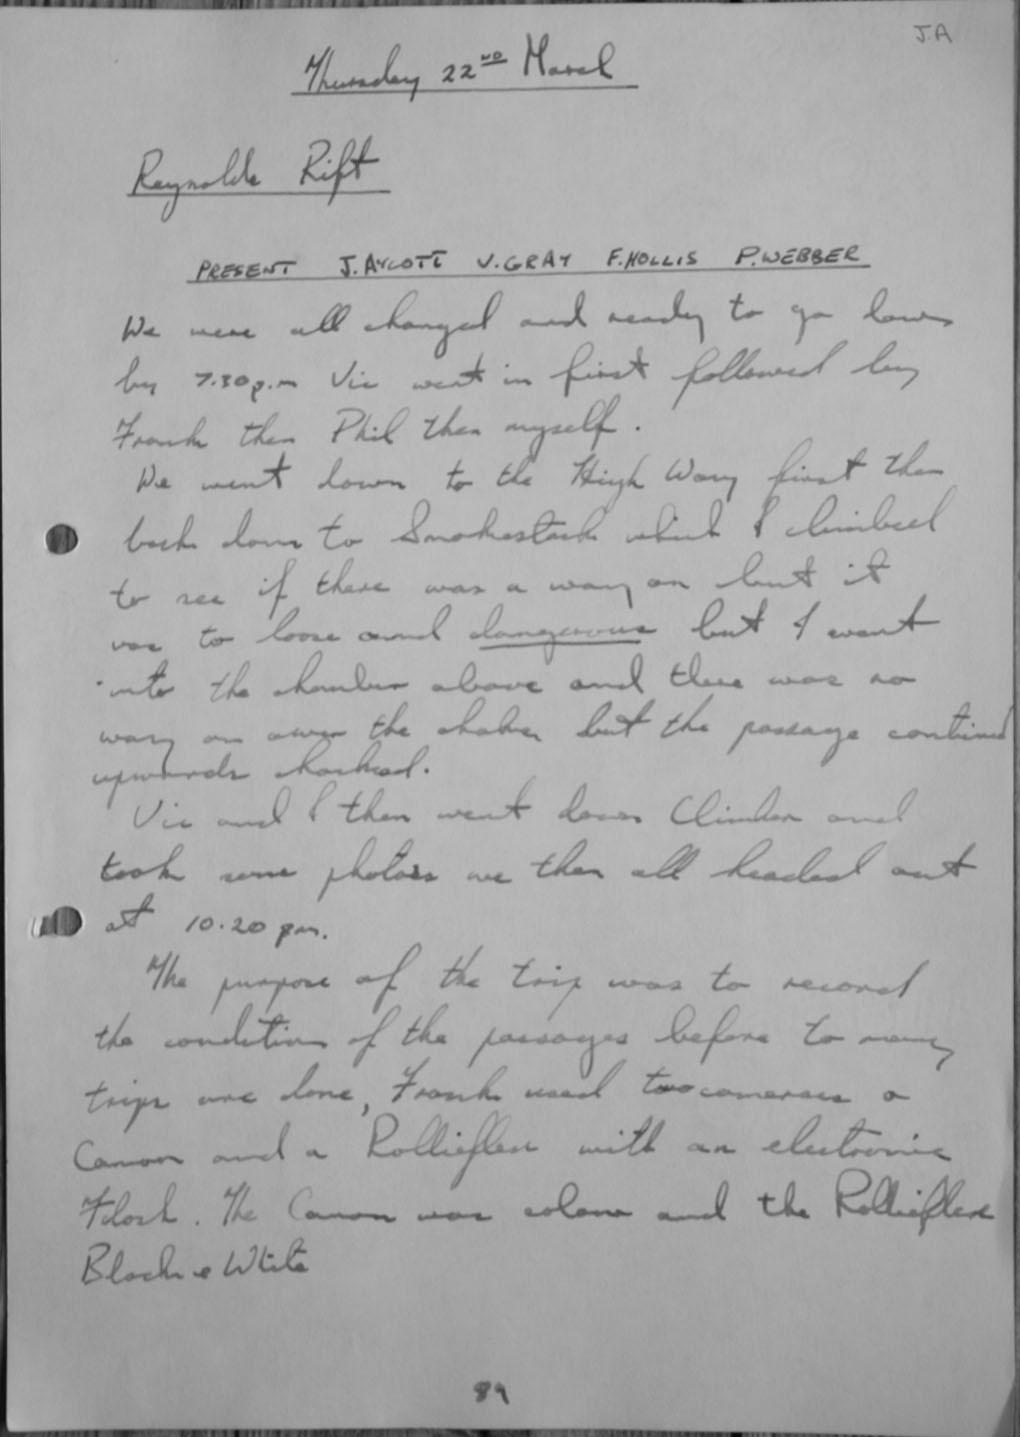 J.A
Thursday 22ND March
Reynolds Rift
PRESENT J.AYCOTT V.GRAY F.HOLLIS P.WEBBER
We were all changed and ready to go down
by 7.30p.m Vic went in first followed by
Frank then Phil then myself.
We went down to the High Way first then
back down to Smokestack which I climbed
to see if there was a way on but it
was to loose and dangerous but I went
into the chamber above and there was no
way on over the but the passage continued
upwards choked.
Vic and I then went down Climber and
took some photos we then all headed out
at 10.20 pm.
The purpose of the trip was to record
the condition of the passages before to many
trips are done, Frank used two cameras a
Canon and a Rollieflex with an electronic
Flash. The Canon was colour and the Rollieflex
Black & White
89